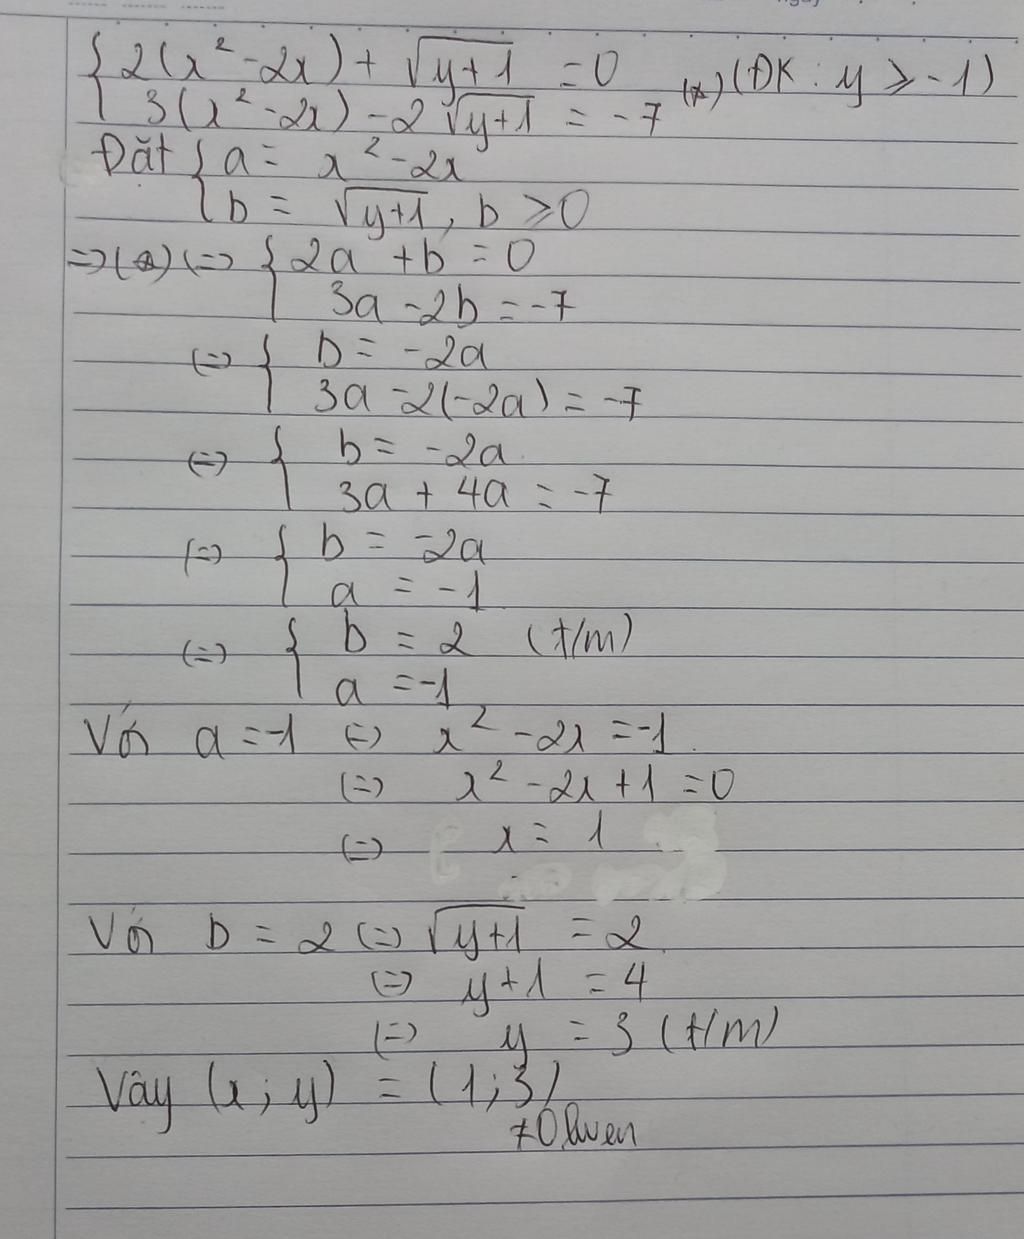 { 2(x² - 2x) + √(y+1) = 0
{ 3(x² - 2x) - 2√(y+1) = -7 (*) (ĐK : y ≥ -1)
Đặt { a = x² - 2x
{ b = √(y+1), b ≥ 0
=> (*) (=) { 2a + b = 0
{ 3a - 2b = -7
(=) { b = -2a
{ 3a - 2(-2a) = -7
(=) { b = -2a
{ 3a + 4a = -7
(=) { b = -2a
{ a = -1
(=) { b = 2 (t/m)
{ a = -1
Với a = -1 (=) x² - 2x = -1
(=) x² - 2x + 1 = 0
(=) x = 1
Với b = 2 (=) √(y+1) = 2
(=) y + 1 = 4
(=) y = 3 (t/m)
Vây (x ; y) = (1 ; 3)